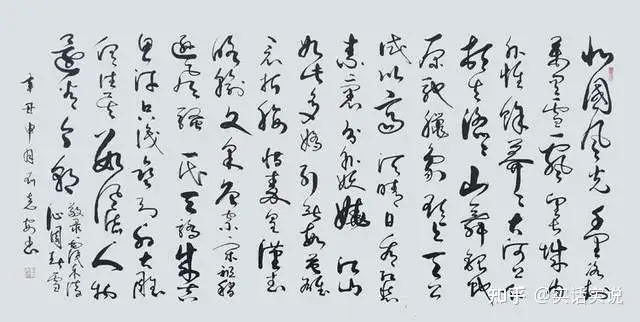 北国风光千里冰封
万里雪飘望长城内
外惟馀莽莽大河上下
顿失滔滔山舞银蛇
原驰蜡象欲与天公
试比高须晴日看红装
素裹分外妖娆江山
如此多娇引无数英雄
竞折腰惜秦皇汉武
略输文采唐宗宋祖稍
逊风骚一代天骄成吉
思汗只识弯弓射大雕
俱往矣数风流人物
还看今朝
敬录毛泽东诗
沁园春雪
辛丑申月
知乎 @实话实说